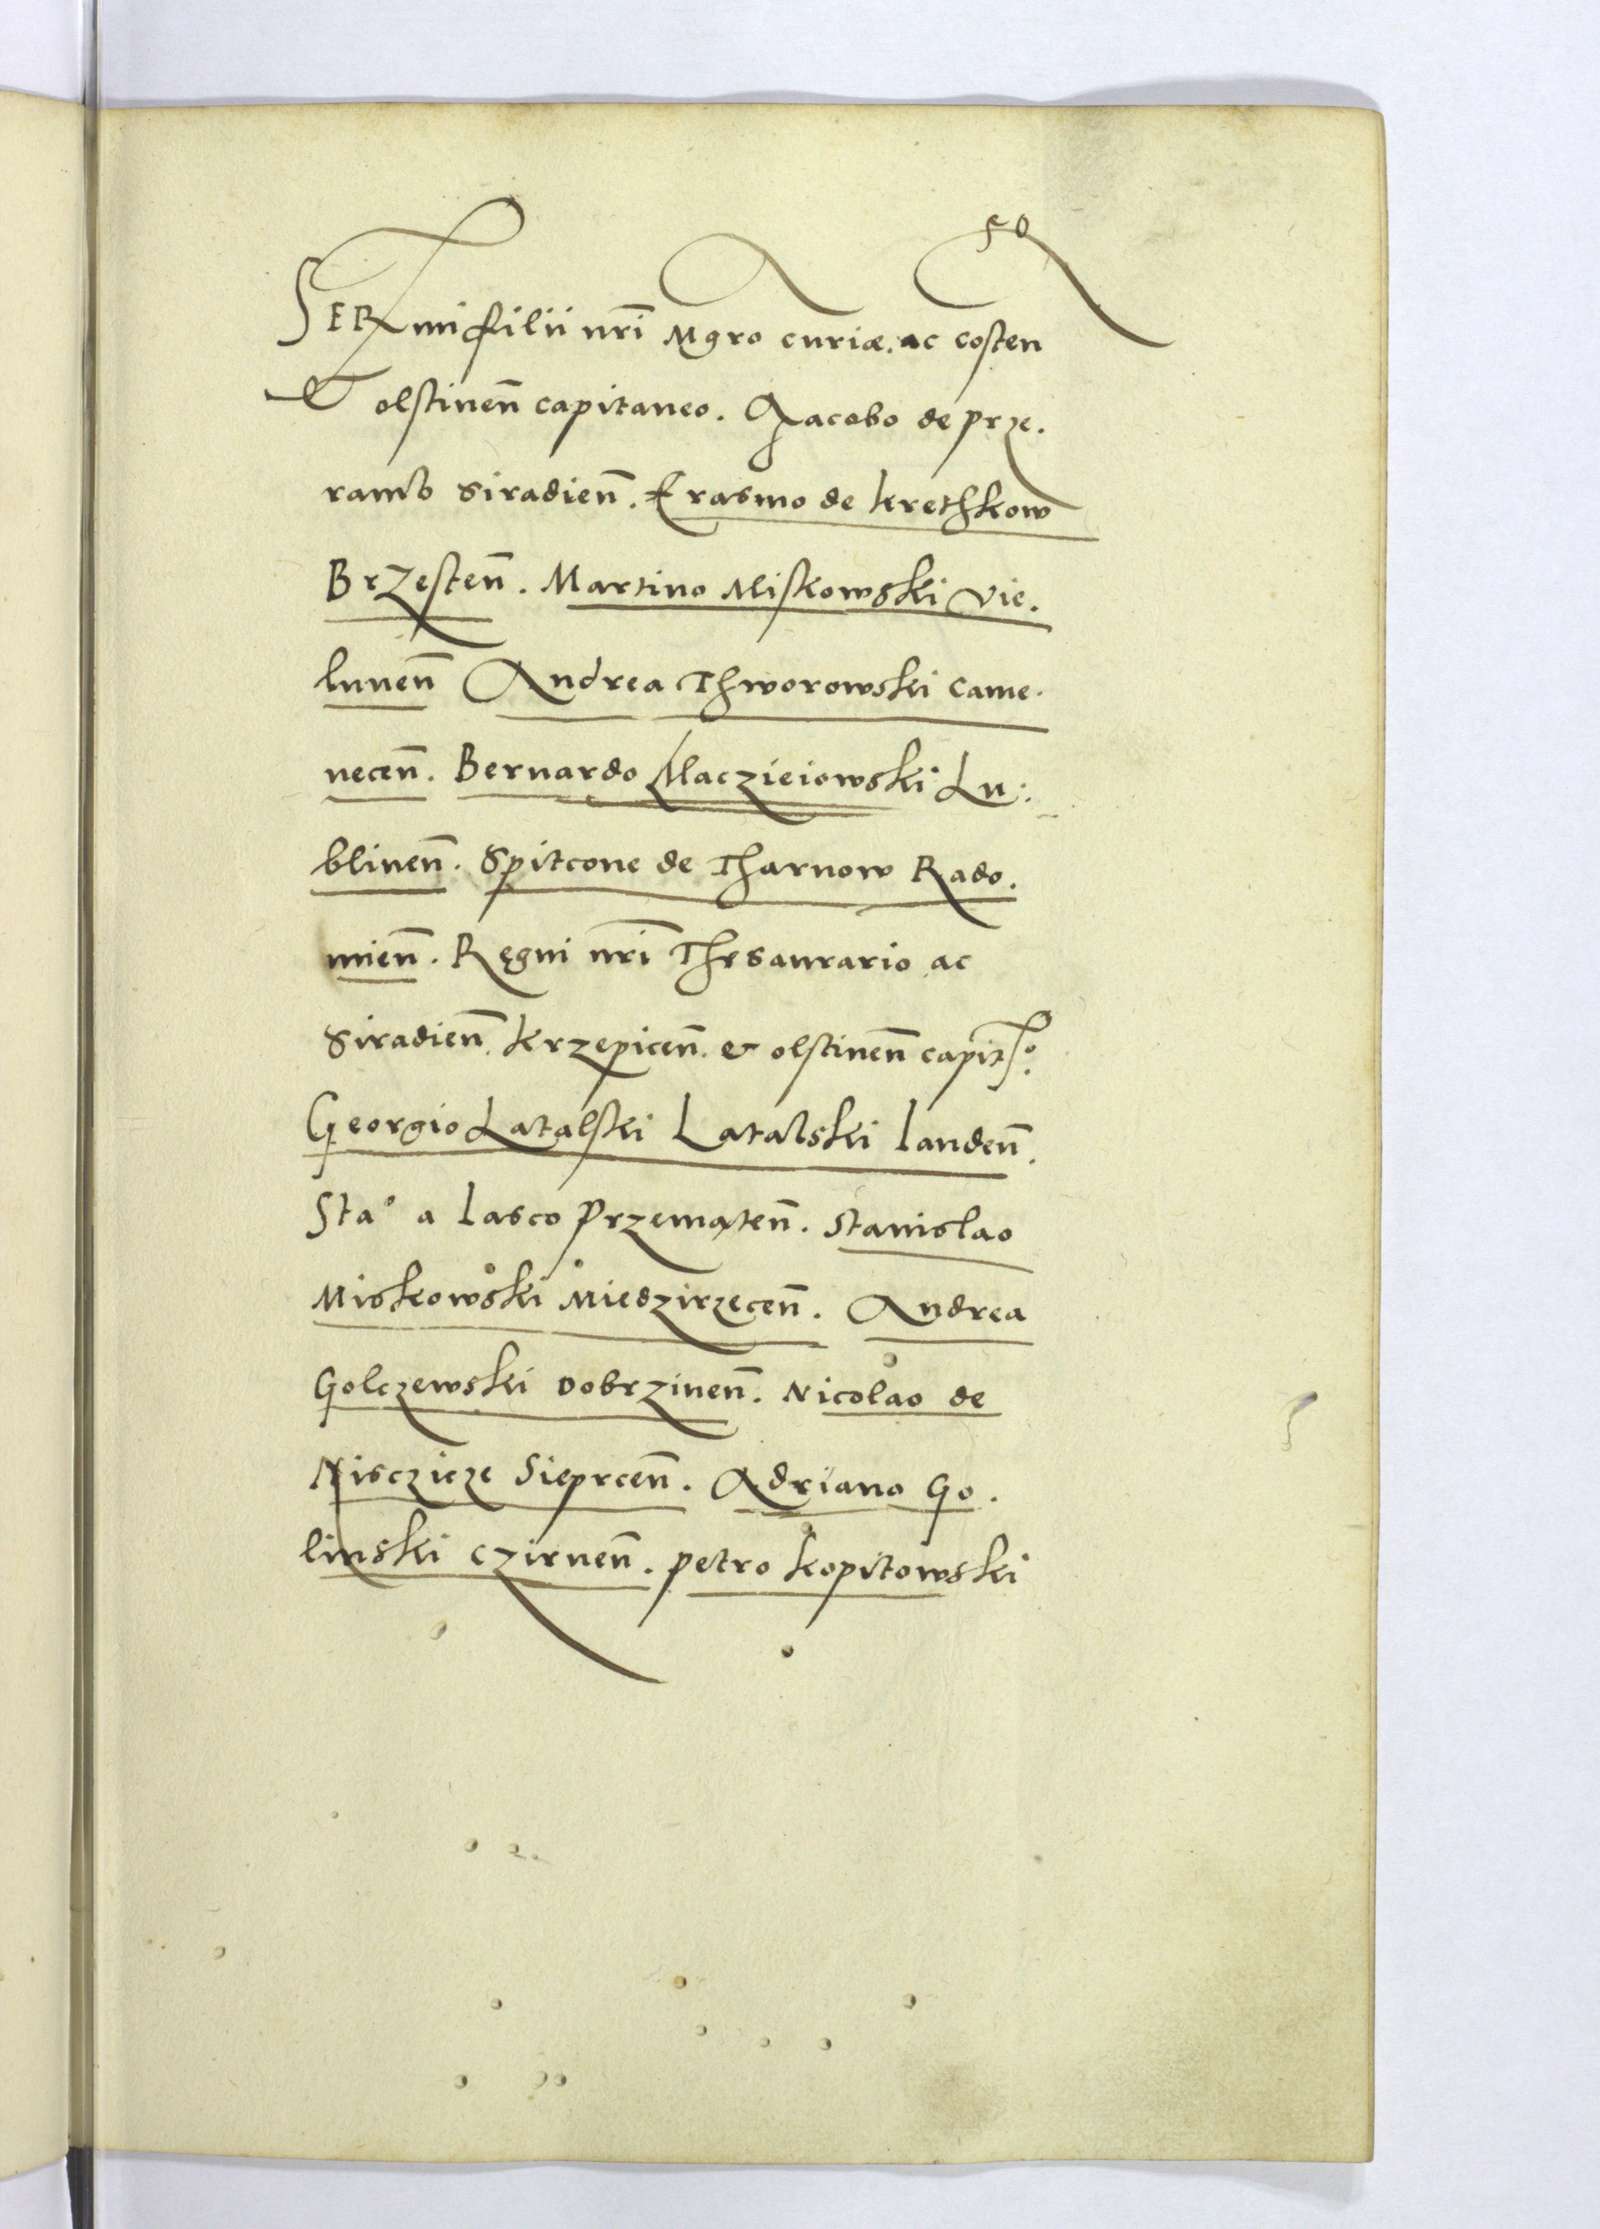 50
SERmi filii nr̄i Mgro curiæ. ac costen
& olstinen̄ capitaneo. Jacobo de prze.
ramb siradien̄. Erasmo de krethkow
Brzesten̄. Martino Miskowski Vie.
lunen̄ Andrea Thworowski Came.
necen̄. Bernardo Macziejowski Lu:
blinen̄. Spitcone de Tharnow Rado.
mien̄. Regni nr̄i Thesaurario ac
Siradien̄. krzepicen̄. & olstinen̄ capit°.
Georgio Latalski Latalski landen̄.
Sta° a Lasco Przematen̄. Stanislao
Miskowski Miedzirzecen̄. Andrea
Golczewski Dobrzinen̄. Nicolao de
Nisczicze Sieprcen̄. Adriano Go.
linski Czirnen̄. petro kopitowski